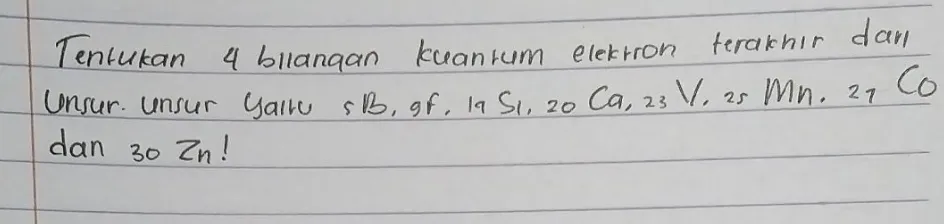 Tentukan 4 bilangan kuantum elektron terakhir dari
Unsur. unsur yaitu 5B, 9f, 19 Si, 20 Ca, 23 V, 25 Mn. 27 Co
dan 30 Zn!